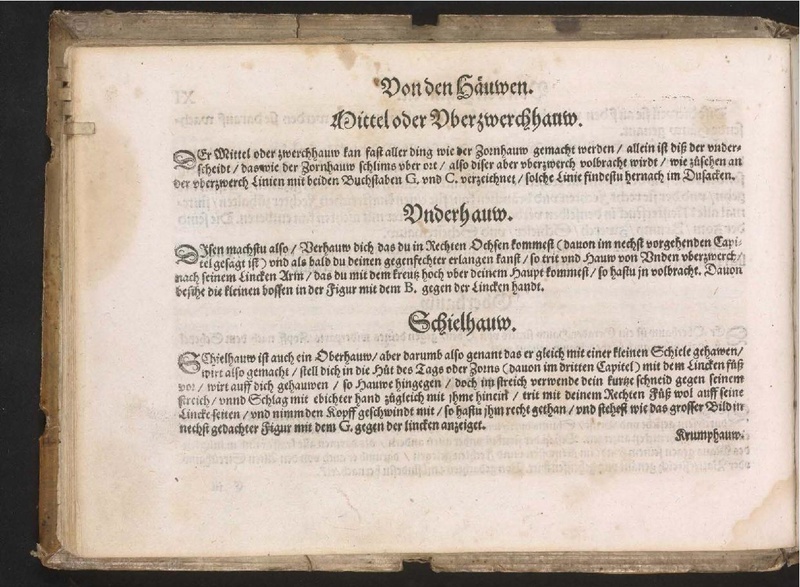 Von den Häuwen.
Mittel oder Vberzwerchhauw.
DEr Mittel oder zwerchhauw kan fast aller ding wie der Zornhauw gemacht werden / allein ist diß der vnder-
scheidt / das wie der Zornhauw schlims vber ort / also diser aber vberzwerch volbracht wirdt / wie zůsehen an
der vberzwerch Linien mit beiden Buchstaben G. vnd C. verzeichnet / solche Linie findestu hernach im Dusacken.
Vnderhauw.
DIsen machstu also / Verhauw dich das du in Rechten Ochsen kommest (dauon im nechst vorgehenden Capi-
tel gesagt ist) vnd als bald du deinen gegenfechter erlangen kanst / so trit vnd Hauw von Vnden vberzwerch /
nach seinem Lincken Arm / das du mit dem kreutz hoch vber deinem Haupt kommest / so hastu jn volbracht. Dauon
besihe die kleinen bossen in der Figur mit dem B. gegen der Lincken handt.
Schielhauw.
SChielhauw ist auch ein Oberhauw / aber darumb also genant das er gleich mit einer kleinen Schiele gehawen /
wirt also gemacht / stell dich in die Hůt des Tags oder Zorns (dauon im dritten Capitel) mit dem Lincken fůß
vor / wirt auff dich gehauwen / so Hauwe hingegen / doch im streich verwende dein kurtze schneid gegen seinem
streich / vnnd Schlag mit ebichter hand zůgleich mit jhme hinein / trit mit deinem Rechten Fůß wol auff seine
Lincke seiten / vnd nimm den Kopff geschwindt mit / so hastu jhm recht gethan / vnd stehest wie das grosser Bild in
nechst gedachter Figur mit dem G. gegen der lincken anzeiget.
Krumphauw.